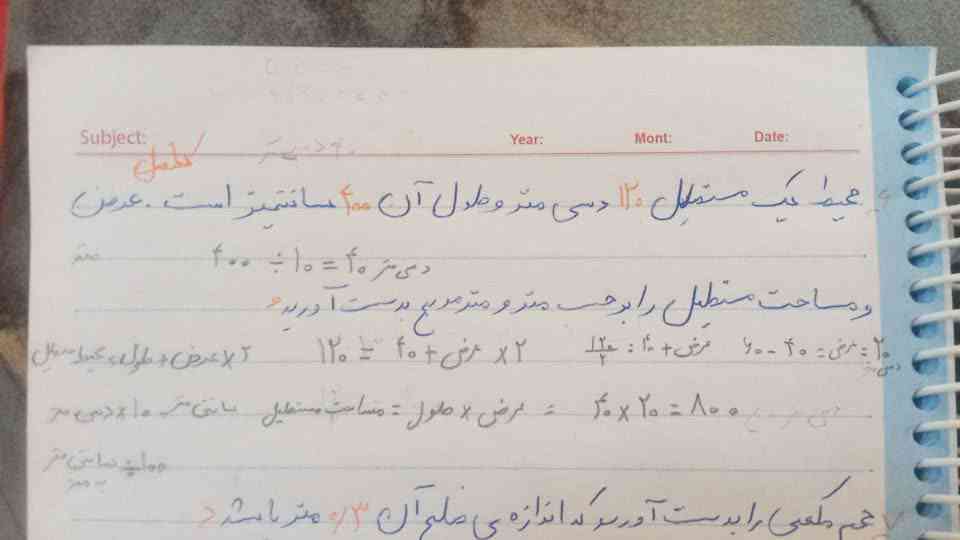 Subject: Year: Mont: Date:
کامل
محیط یک مستطیل ۱۲۰ دسی متر و طول آن ۴۰۰ سانتیمتر است. عرض
۴۰۰ ÷ ۱۰ = ۴۰ دسی متر
و مساحت مستطیل را بر حسب متر و متر مربع بدست آورید
۲ × عرض + طول = محیط مستطیل ۱۲۰ = ۴۰ + عرض × ۲ ۱۲۰/۲ = ۴۰ + عرض ۶۰ - ۴۰ = عرض = ۲۰ دسی متر
مساحت مستطیل = طول × عرض = ۴۰ × ۲۰ = ۸۰۰ سانتی متر ۱۰ × دسی متر
۱۰۰ ÷ سانتی متر
۷ حجم مکعبی را بدست آورید که اندازه ی ضلع آن ۰/۳ متر باشد